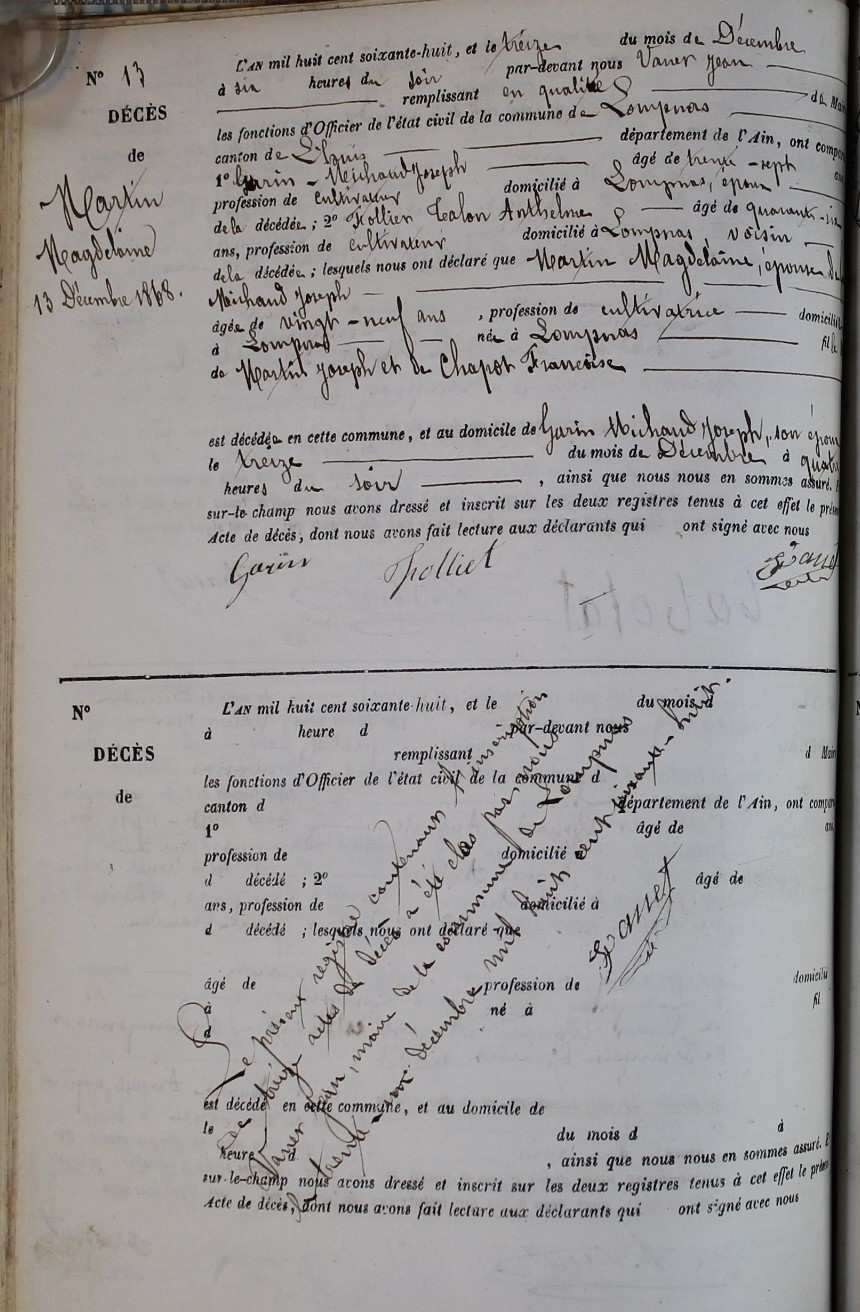 N° 13
DÉCÈS
de
Martin
Magdelaine
13 Décembre 1868.
L'AN mil huit cent soixante-huit, et le treize du mois de Décembre
à six heures du soir par-devant nous Vanet Jean
remplissant en qualité de Maire
les fonctions d'Officier de l'état civil de la commune de Lompnas
canton de Lhuis département de l'Ain, ont compar
1° Garin-Michaud Joseph âgé de trente-sept ans
profession de cultivateur domicilié à Lompnas, époux
de la décédée ; 2° Talon Anthelme âgé de quarante-six
ans, profession de cultivateur domicilié à Lompnas, voisin
de la décédée ; lesquels nous ont déclaré que Martin Magdelaine, épouse de
Michaud Joseph
âgée de vingt-neuf ans, profession de cultivatrice domicilié
à Lompnas née à Lompnas fille
de Martin Joseph et de Chapot Francoise
est décédée en cette commune, et au domicile de Garin Michaud Joseph, son époux
le treize du mois de Décembre à quatre
heures du soir, ainsi que nous nous en sommes assuré.
sur-le champ nous avons dressé et inscrit sur les deux registres tenus à cet effet le présen
Acte de décès, dont nous avons fait lecture aux déclarants qui ont signé avec nous
Garin Folliet Vanet
N°
DÉCÈS
de
L'AN mil huit cent soixante-huit, et le du mois d
à heure d par-devant nous
remplissant d Mair
les fonctions d'Officier de l'état civil de la commune d
canton d département de l'Ain, ont compar
1° âgé de ans
profession de domicilié à
d décédé ; 2° âgé de
ans, profession de domicilié à
d décédé ; lesquels nous ont déclaré que
âgé de profession de domicilié
à né à fil
d
est décédé en cette commune, et au domicile de
le du mois d à
heure d , ainsi que nous nous en sommes assuré.
sur-le-champ nous avons dressé et inscrit sur les deux registres tenus à cet effet le présen
Acte de décès, dont nous avons fait lecture aux déclarants qui ont signé avec nous
Le présent registre contenant transcription
de treize actes de décès a été clos par nous
Vanet Jean, maire de la commune de Lompnas
le trente-un décembre mil huit cent soixante-huit.
Vanet